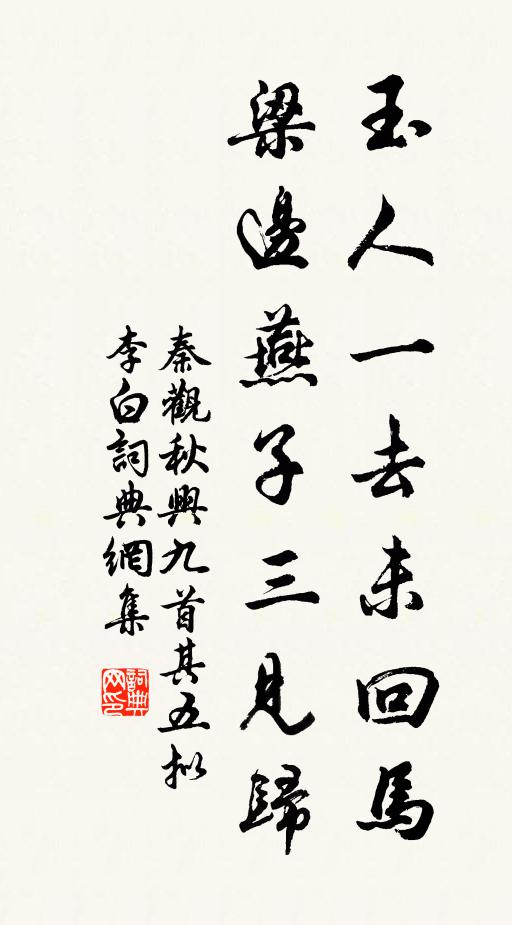 玉人一去未回馬
梁邊燕子三見歸
秦觀秋興九首其五拟
李白詞典網集
詞典网印